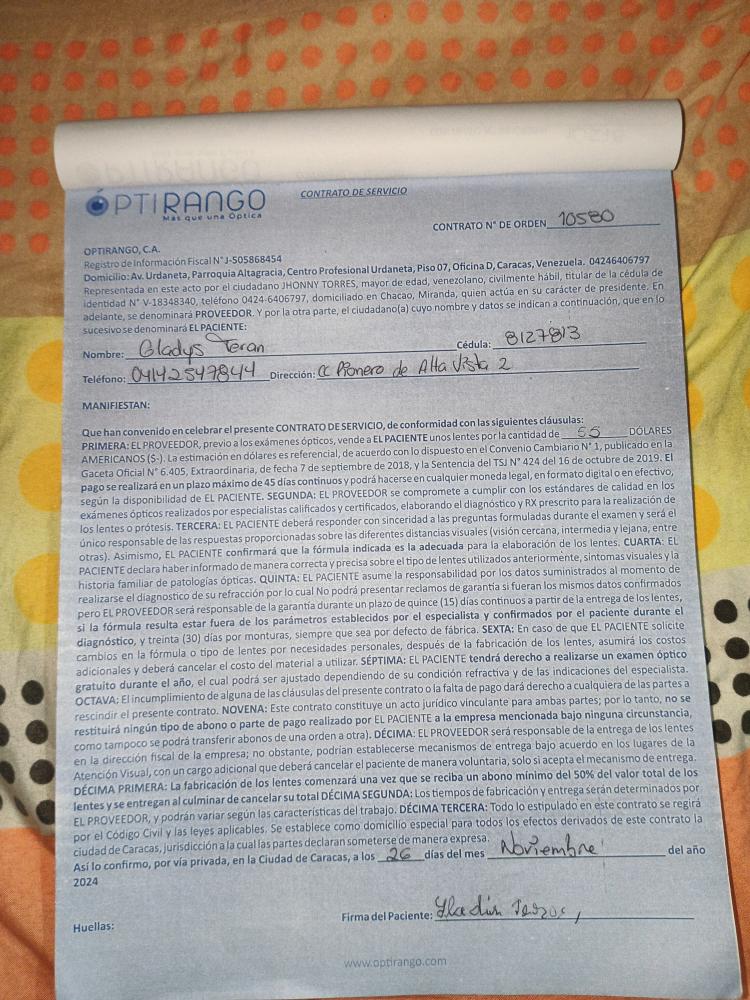 ÓPTIRANGO
Más que una Óptica
CONTRATO DE SERVICIO
CONTRATO N° DE ORDEN 10580
OPTIRANGO, C.A.
Registro de Información Fiscal N° J-505868454
Domicilio: Av. Urdaneta, Parroquia Altagracia, Centro Profesional Urdaneta, Piso 07, Oficina D, Caracas, Venezuela. 04246406797
Representada en este acto por el ciudadano JHONNY TORRES, mayor de edad, venezolano, civilmente hábil, titular de la cédula de
identidad N° V-18348340, teléfono 0424-6406797, domiciliado en Chacao, Miranda, quien actúa en su carácter de presidente. En
adelante, se denominará PROVEEDOR. Y por la otra parte, el ciudadano(a) cuyo nombre y datos se indican a continuación, que en lo
sucesivo se denominará EL PACIENTE:
Nombre: Gladys Teran Cédula: 8127813
Teléfono: 04142547844 Dirección: CC Pionero de Alta Vista 2
MANIFIESTAN:
Que han convenido en celebrar el presente CONTRATO DE SERVICIO, de conformidad con las siguientes cláusulas:
PRIMERA: EL PROVEEDOR, previo a los exámenes ópticos, vende a EL PACIENTE unos lentes por la cantidad de 55 DÓLARES
AMERICANOS ($-). La estimación en dólares es referencial, de acuerdo con lo dispuesto en el Convenio Cambiario N° 1, publicado en la
Gaceta Oficial N° 6.405, Extraordinaria, de fecha 7 de septiembre de 2018, y la Sentencia del TSJ N° 424 del 16 de octubre de 2019. El
pago se realizará en un plazo máximo de 45 días continuos y podrá hacerse en cualquier moneda legal, en formato digital o en efectivo,
según la disponibilidad de EL PACIENTE. SEGUNDA: EL PROVEEDOR se compromete a cumplir con los estándares de calidad en los
exámenes ópticos realizados por especialistas calificados y certificados, elaborando el diagnóstico y RX prescrito para la realización de
los lentes o prótesis. TERCERA: EL PACIENTE deberá responder con sinceridad a las preguntas formuladas durante el examen y será el
único responsable de las respuestas proporcionadas sobre las diferentes distancias visuales (visión cercana, intermedia y lejana, entre
otras). Asimismo, EL PACIENTE confirmará que la fórmula indicada es la adecuada para la elaboración de los lentes. CUARTA: EL
PACIENTE declara haber informado de manera correcta y precisa sobre el tipo de lentes utilizados anteriormente, síntomas visuales y la
historia familiar de patologías ópticas. QUINTA: EL PACIENTE asume la responsabilidad por los datos suministrados al momento de
realizarse el diagnostico de su refracción por lo cual No podrá presentar reclamos de garantía si fueran los mismos datos confirmados
pero EL PROVEEDOR será responsable de la garantía durante un plazo de quince (15) días continuos a partir de la entrega de los lentes,
si la fórmula resulta estar fuera de los parámetros establecidos por el especialista y confirmados por el paciente durante el
diagnóstico, y treinta (30) días por monturas, siempre que sea por defecto de fábrica. SEXTA: En caso de que EL PACIENTE solicite
cambios en la fórmula o tipo de lentes por necesidades personales, después de la fabricación de los lentes, asumirá los costos
adicionales y deberá cancelar el costo del material a utilizar. SÉPTIMA: EL PACIENTE tendrá derecho a realizarse un examen óptico
gratuito durante el año, el cual podrá ser ajustado dependiendo de su condición refractiva y de las indicaciones del especialista.
OCTAVA: El incumplimiento de alguna de las cláusulas del presente contrato o la falta de pago dará derecho a cualquiera de las partes a
rescindir el presente contrato. NOVENA: Este contrato constituye un acto jurídico vinculante para ambas partes; por lo tanto, no se
restituirá ningún tipo de abono o parte de pago realizado por EL PACIENTE a la empresa mencionada bajo ninguna circunstancia,
como tampoco se podrá transferir abonos de una orden a otra). DÉCIMA: EL PROVEEDOR será responsable de la entrega de los lentes
en la dirección fiscal de la empresa; no obstante, podrían establecerse mecanismos de entrega bajo acuerdo en los lugares de la
Atención Visual, con un cargo adicional que deberá cancelar el paciente de manera voluntaria, solo si acepta el mecanismo de entrega.
DÉCIMA PRIMERA: La fabricación de los lentes comenzará una vez que se reciba un abono mínimo del 50% del valor total de los
lentes y se entregan al culminar de cancelar su total DÉCIMA SEGUNDA: Los tiempos de fabricación y entrega serán determinados por
EL PROVEEDOR, y podrán variar según las características del trabajo. DÉCIMA TERCERA: Todo lo estipulado en este contrato se regirá
por el Código Civil y las leyes aplicables. Se establece como domicilio especial para todos los efectos derivados de este contrato la
ciudad de Caracas, jurisdicción a la cual las partes declaran someterse de manera expresa.
Así lo confirmo, por vía privada, en la Ciudad de Caracas, a los 26 días del mes Noviembre del año
2024
Huellas:
Firma del Paciente:
www.optirango.com